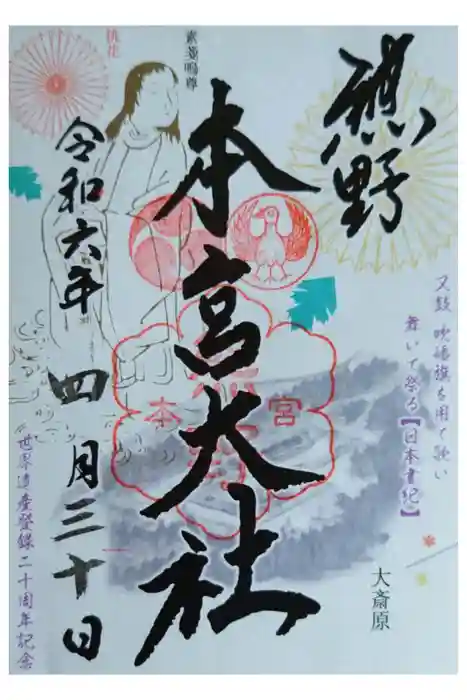 熊野
本宮大社
令和六年
四月三十日
素戔嗚尊
又鼓吹幡旗を用て歌い
舞いて祭る【日本書紀】
大斎原
世界遺産登録二十周年記念
本
宮